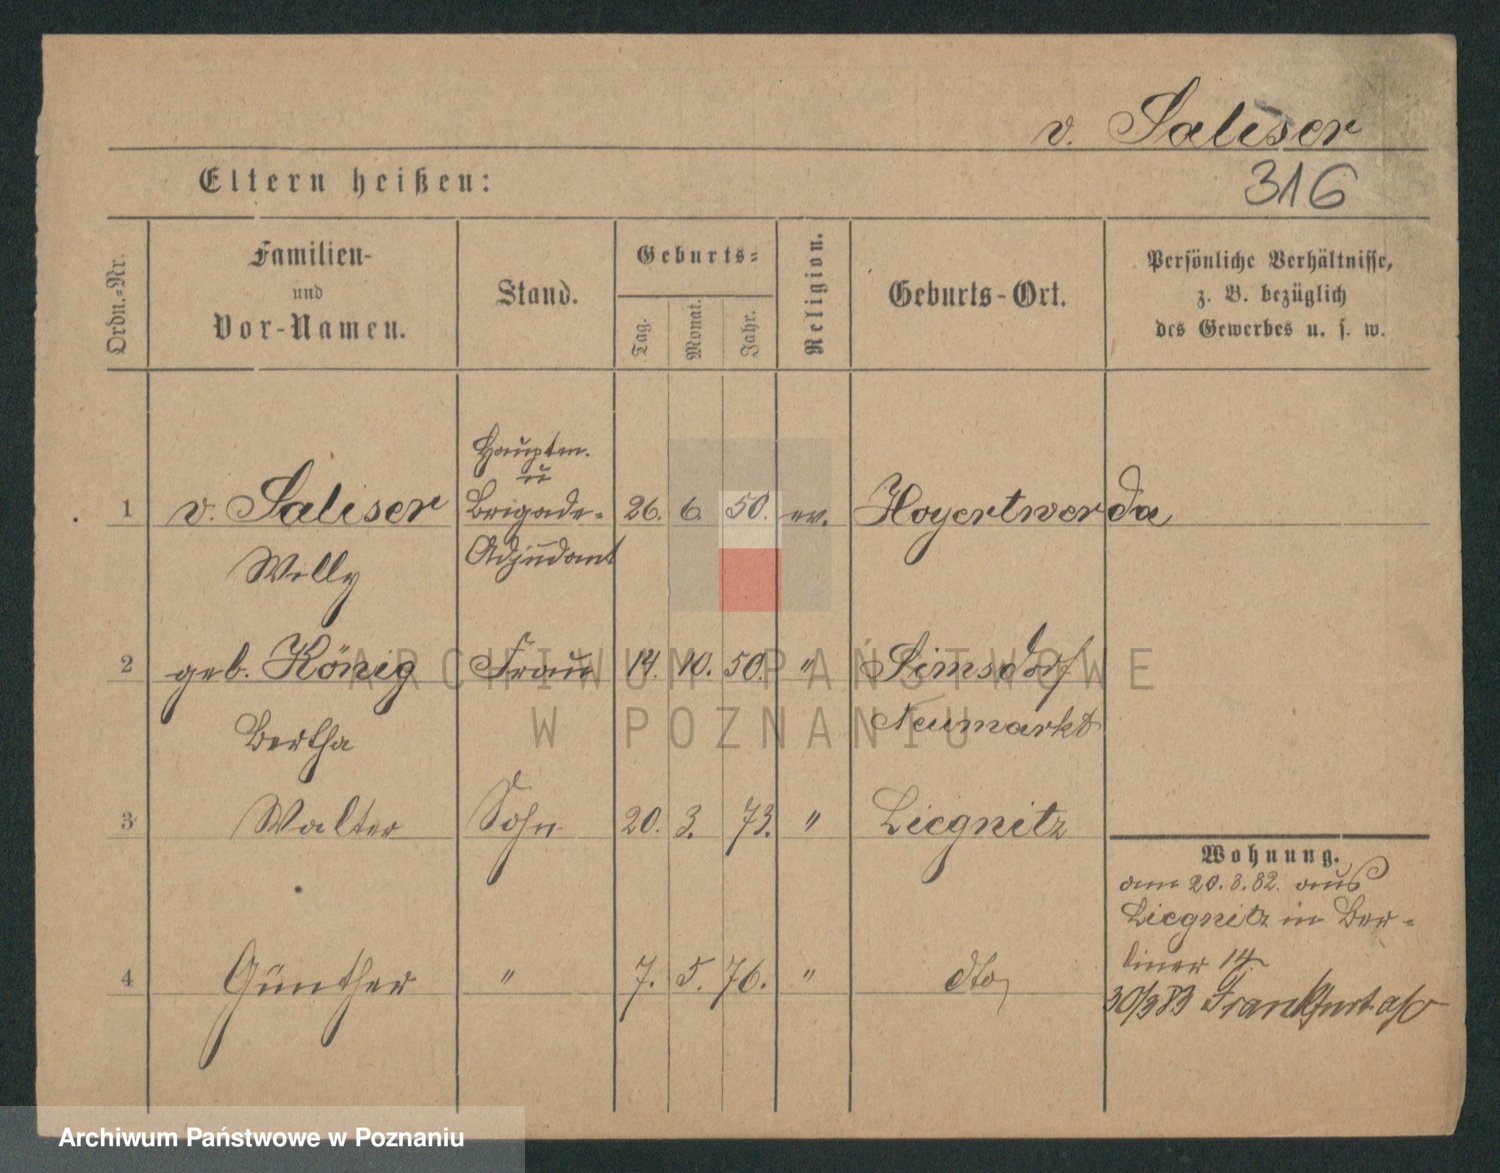 v. Saliser
316
Eltern heißen:
Ordn.-Nr.
Familien-
und
Vor-Namen.
Stand.
Geburts-
Tag.
Monat.
Jahr.
Religion.
Geburts-Ort.
Persönliche Verhältnisse,
z. B. bezüglich
des Gewerbes u. s. w.
Hauptm.
u
1 v. Saliser Brigade- 26. 6. 50. ev. Hoyertwerda
Willy Adjudant
2 geb. König Frau 14. 10. 50. " Simsdorf
Bertha Neumarkt
3 Walter Sohn 20. 3. 73. " Liegnitz
Wohnung.
am 20.3.82. aus
Liegnitz in Ber-
liner 14
4 Günther " 7. 5. 76. " dto
30/3 83 Frankfurt a/O
ARCHIWUM PAŃSTWOWE
W POZNANIU
Archiwum Państwowe w Poznaniu